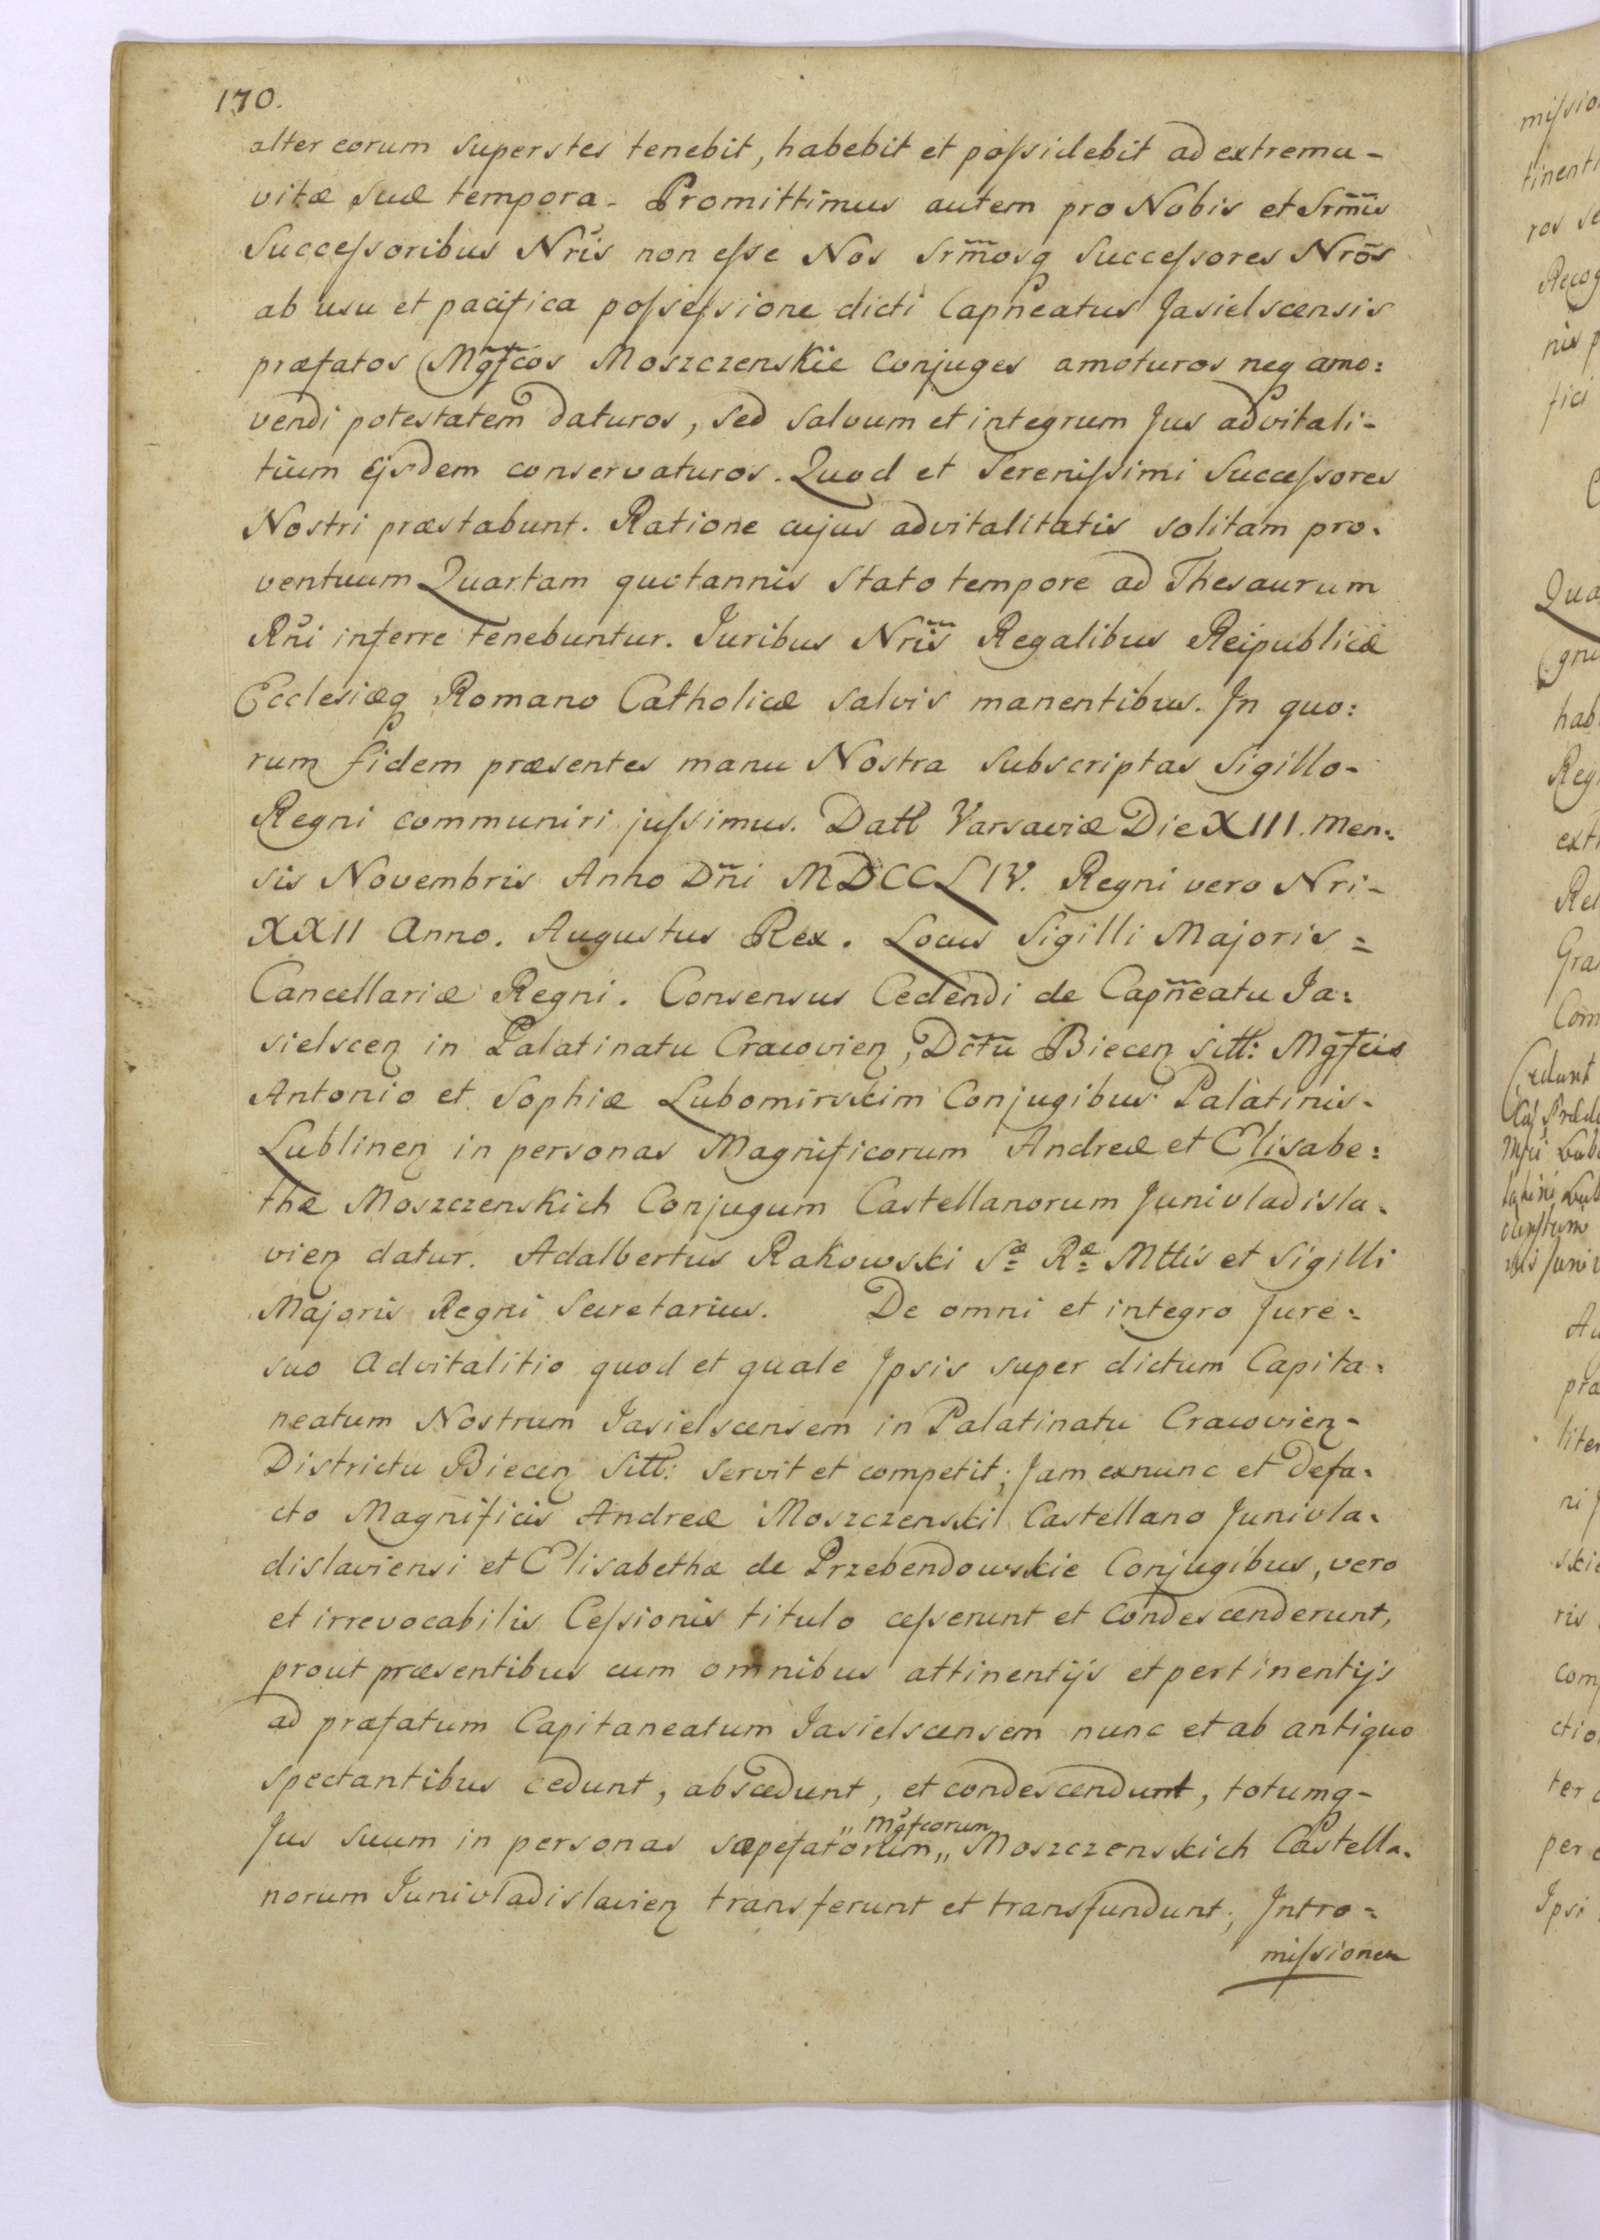 170.
alter eorum superstes tenebit, habebit et poſsidebit ad extrema-
vitæ suæ tempora. Promittimus autem pro Nobis et Srm̃is
Succeſsoribus Nr̃is non eſse Nos Srm̃osq Succeſsores Nrõs
ab usu et pacifica poſseſsione dicti Capñeatus Jasielscensis
præfatos Mgf̃cos Moszczenskie Conjuges amoturos neq amo:
vendi potestatem daturos, sed salvum et integrum Jus advitali-
tium ejsdem conservaturos. Quod et Sereniſsimi Succeſsores
Nostri præstabunt. Ratione cujus advitalitatis solitam pro-
ventuum Quartam quotannis stato tempore ad Thesaurum
Rñi inferre tenebuntur. Juribus Nr̃is Regalibus Reipublicæ
Ecclesiæq Romano Catholicæ salvis manentibus. In quo:
rum fidem præsentes manu Nostra subscriptas Sigillo-
Regni communiri juſsimus. Datt Varsaviæ Die XIII. Men-
sis Novembris Anno Dñi MDCCLIV. Regni vero Nri-
XXII Anno. Augustus Rex. Locus Sigilli Majoris =
Cancellariæ Regni. Consensus Cedendi de Capñeatu Ja:
sielscen in Palatinatu Cracovien, Dctũ Biecen sitt: Mgf̃cis
Antonio et Sophiæ Lubomirskim Conjugibus Palatinis-
Lublinen in personas Magnificorum Andreæ et Elisabe:
thæ Moszczenskich Conjugum Castellanorum Junivladisla-
vien datur. Adalbertus Rakowski Sæ Ræ Mttis et Sigilli
Majoris Regni Secretarius. De omni et integro Jure=
suo advitalitio quod et quale Ipsis super dictum Capita-
neatum Nostrum Jasielscensem in Palatinatu Cracovien-
Districtu Biecen Sitt: servit et competit; Jam exnunc et defa-
cto Magnificis Andreæ Moszczenskii Castellano Junivla-
dislaviensi et Elisabethæ de Przebendowskie Conjugibus, vero
et irrevocabilis Ceſsionis titulo ceſserunt et Condescenderunt,
prout præsentibus cum omnibus attinentijs et pertinentijs
ad præfatum Capitaneatum Jasielscensem nunc et ab antiquo
spectantibus cedunt, abscedunt, et condescendunt, totumq-
„ Mgf̃corum
Jus suum in personas sæpefatorum „ Moszczenskich Castella-
norum Junivladislavien transferunt et transfundunt; Intro=
miſsionem